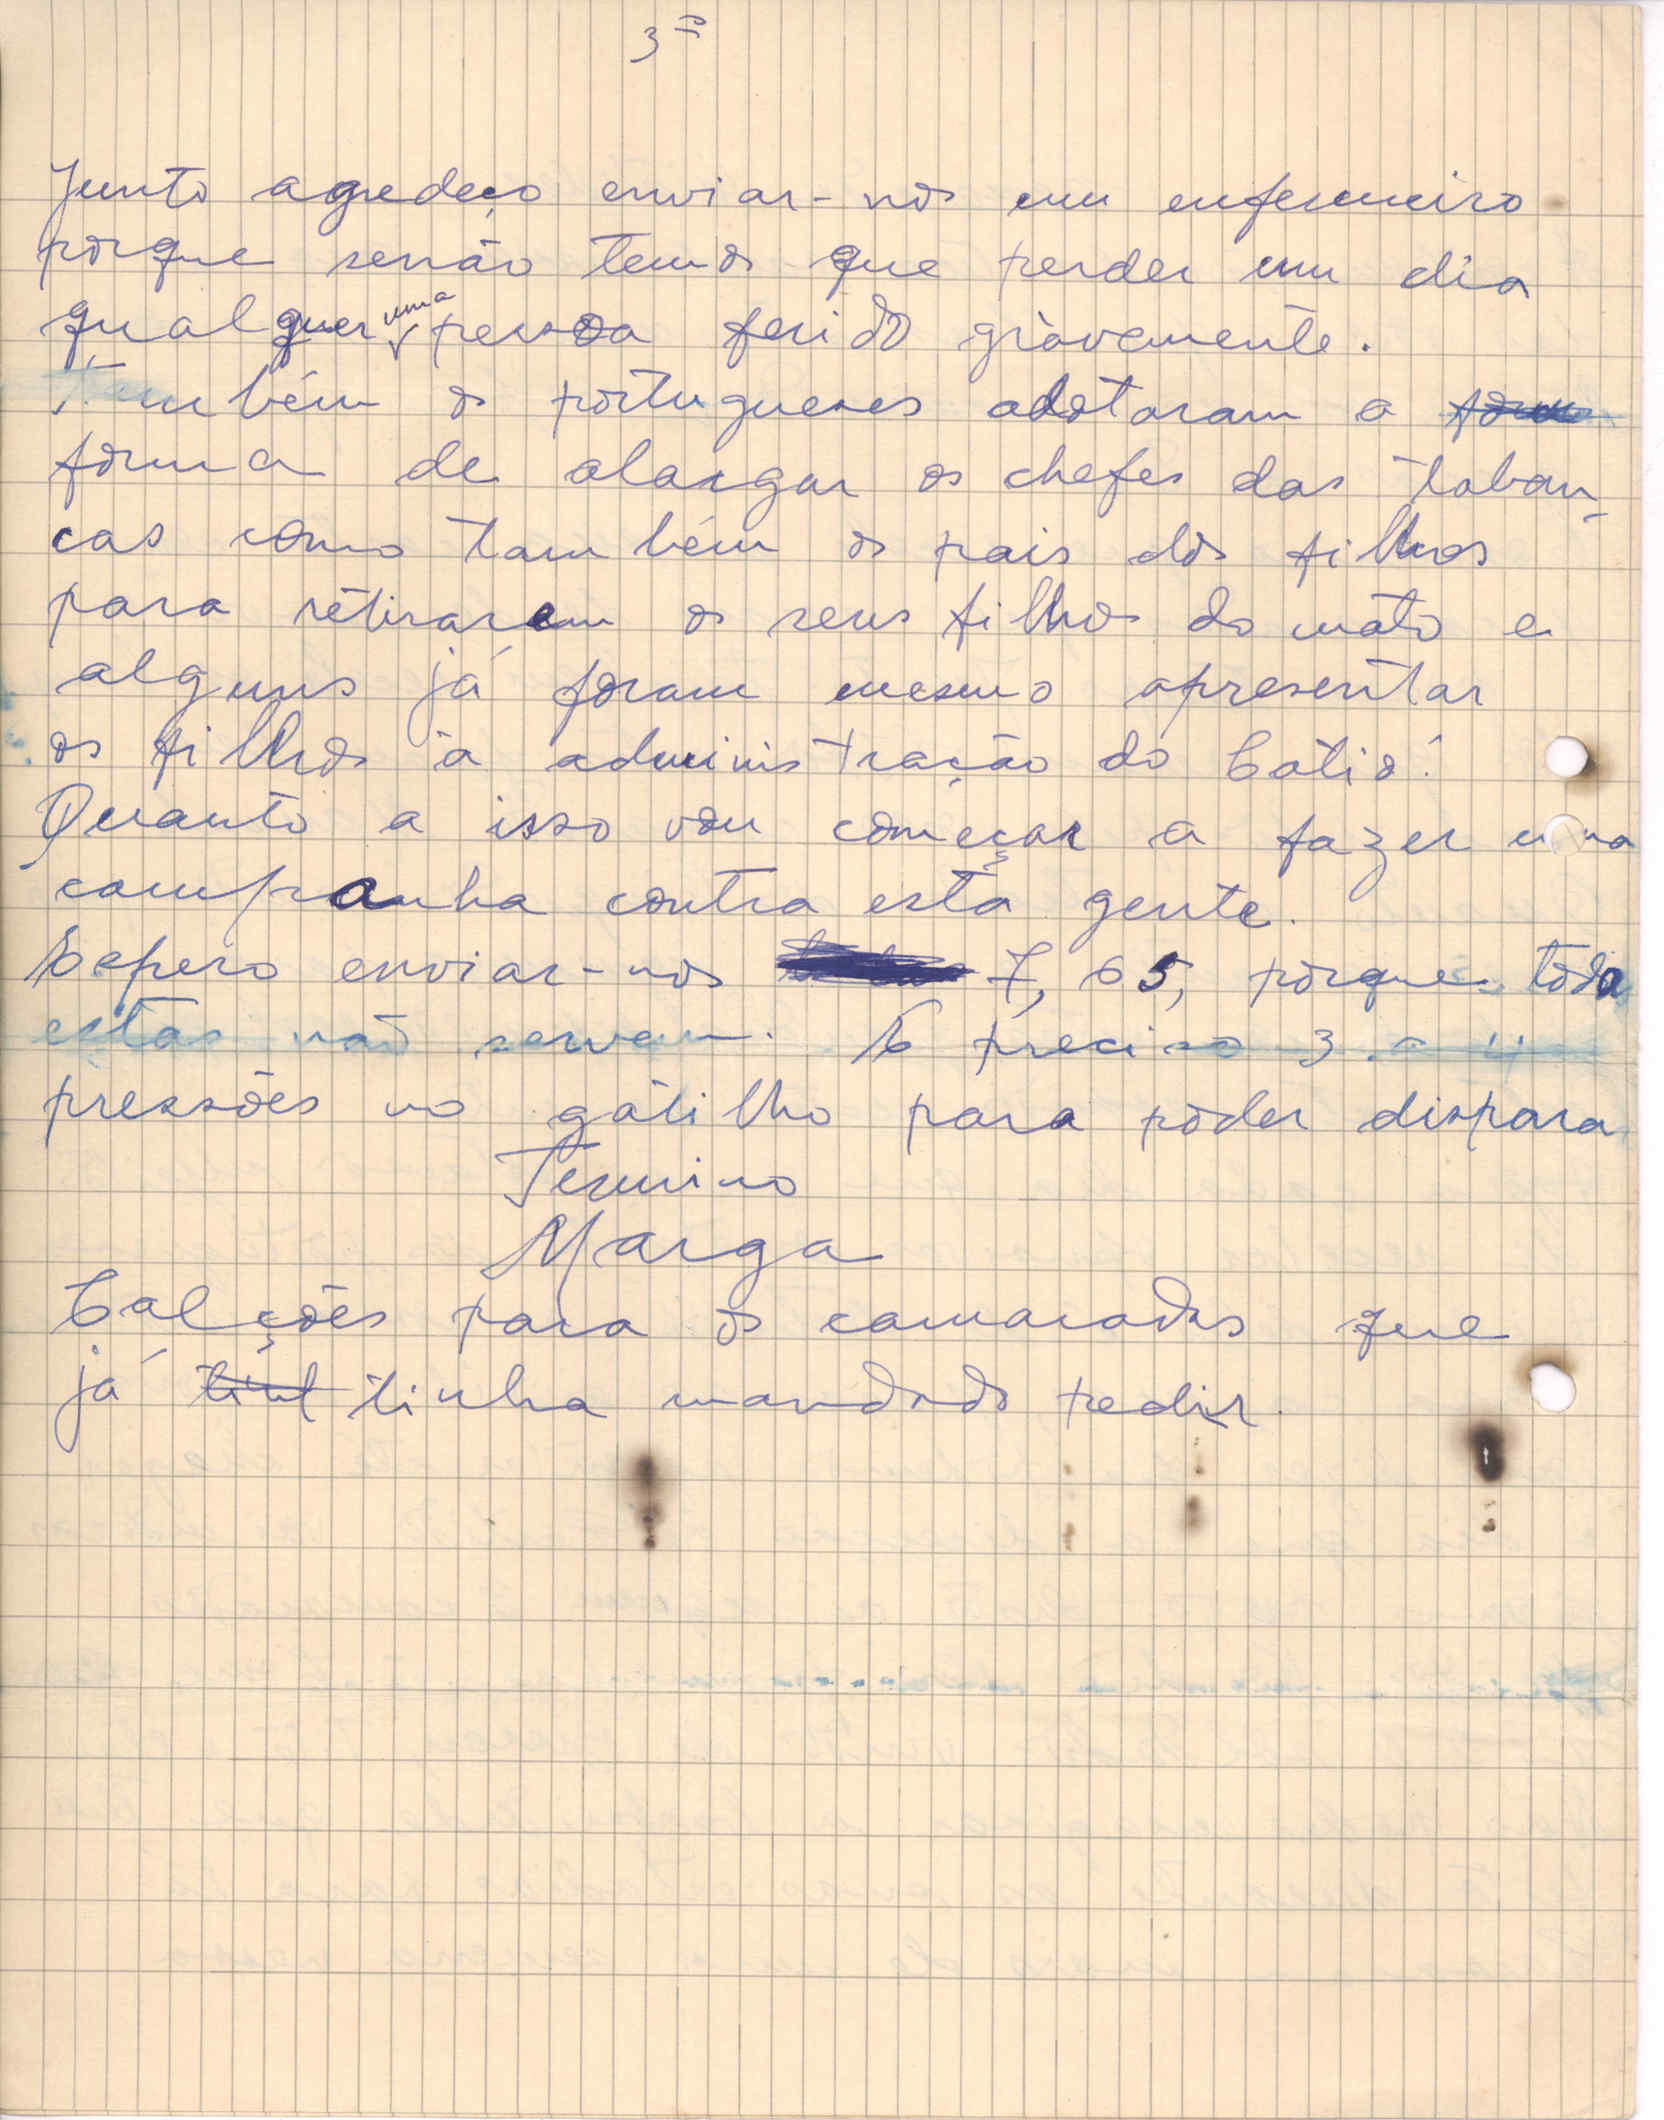 3º
Junto agredeço enviar-nos um enfermeiro
porque senão temos que perder um dia
qualquer uma pessoa ferido gràvemente.
Também os portugueses adotaram a form
forma de alargar os chefes das taban-
cas como também os pais dos filhos
para retirarem os seus filhos do mato e
alguns já foram mesmo apresentar
os filhos à administração do Catió.
Quanto a isso vou começar a fazer uma
campanha contra esta gente.
Espero enviar-nos 7,65, porque toda
estas não servem. É preciso 3 a 4
pressões no gàtilho para poder dispara
Termino
Marga
Calções para os camaradas que
já tinh tinha mandado pedir.